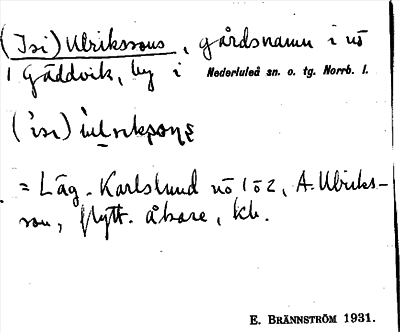 (Isi) Ulrikssons, gårdsnamn i nö
1 Gäddvik, by i Nederluleå sn. o. tg. Norrb. l.
= Läg. Karlslund nö 1 o 2, A. Ulriks-
son, flytt. åbore,
E. BRÄNNSTRÖM 1931.